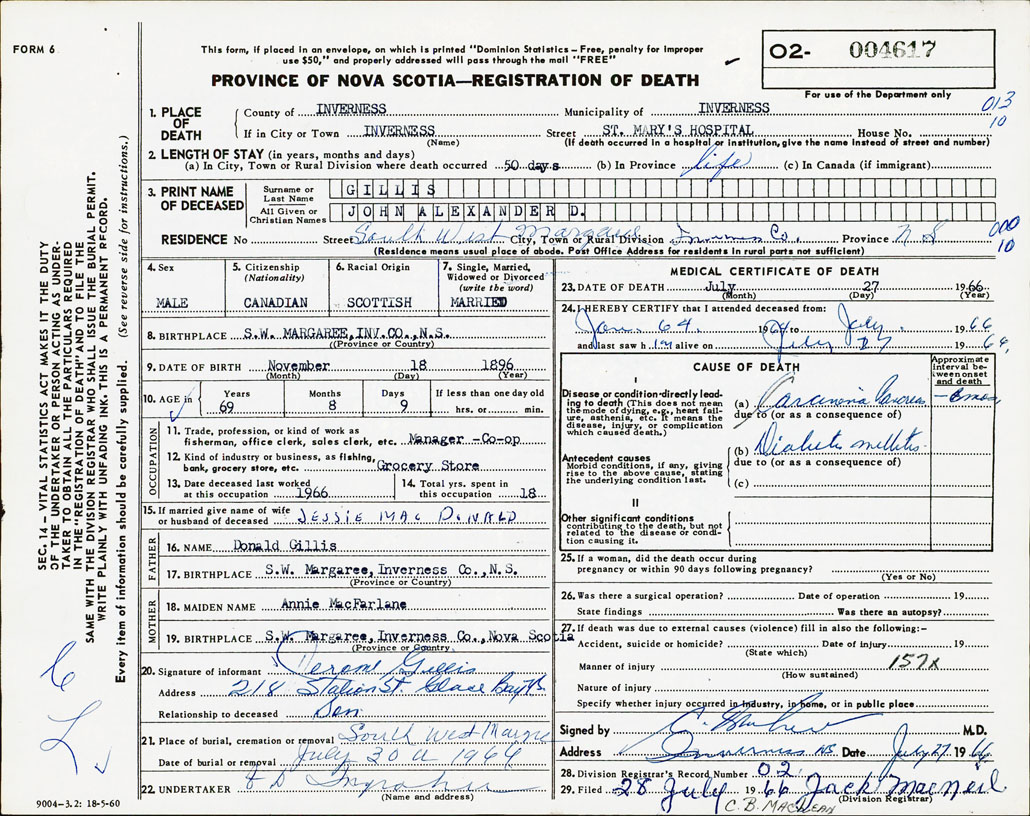 FORM 6
This form, if placed in an envelope, on which is printed "Dominion Statistics – Free, penalty for improper
use $50," and properly addressed will pass through the mail "FREE"
PROVINCE OF NOVA SCOTIA—REGISTRATION OF DEATH
02- 004617
For use of the Department only
SEC. 14 – VITAL STATISTICS ACT MAKES IT THE DUTY
OF THE UNDERTAKER OR PERSON ACTING AS UNDER-
TAKER TO OBTAIN ALL THE PARTICULARS REQUIRED
IN THE "REGISTRATION OF DEATH" AND TO FILE THE
SAME WITH THE DIVISION REGISTRAR WHO SHALL ISSUE THE BURIAL PERMIT.
WRITE PLAINLY WITH UNFADING INK. THIS IS A PERMANENT RECORD.
Every item of information should be carefully supplied. (See reverse side for instructions.)
1. PLACE OF DEATH
County of INVERNESS Municipality of INVERNESS 013
10
If in City or Town INVERNESS Street ST. MARY'S HOSPITAL House No.
(Name) (If death occurred in a hospital or institution, give the name instead of street and number)
2. LENGTH OF STAY (in years, months and days)
(a) In City, Town or Rural Division where death occurred 50 days (b) In Province life (c) In Canada (if immigrant)
3. PRINT NAME OF DECEASED
Surname or Last Name GILLIS
All Given or Christian Names JOHN ALEXANDER D.
RESIDENCE No Street South West Margaree City, Town or Rural Division Inverness Co. Province N S 000
10
(Residence means usual place of abode. Post Office Address for residents in rural parts not sufficient)
4. Sex MALE
5. Citizenship (Nationality) CANADIAN
6. Racial Origin SCOTTISH
7. Single, Married, Widowed or Divorced (write the word) MARRIED
8. BIRTHPLACE S.W. MARGAREE, INV.CO., N.S.
(Province or Country)
9. DATE OF BIRTH November 18 1896
(Month) (Day) (Year)
10. AGE in Years 69 Months 8 Days 9 If less than one day old hrs. or min.
OCCUPATION
11. Trade, profession, or kind of work as
fisherman, office clerk, sales clerk, etc. Manager -Co-op
12. Kind of industry or business, as fishing,
bank, grocery store, etc. Grocery Store
13. Date deceased last worked
at this occupation 1966
14. Total yrs. spent in
this occupation 18
15. If married give name of wife
or husband of deceased JESSIE MAC DONALD
FATHER
16. NAME Donald Gillis
17. BIRTHPLACE S.W. Margaree, Inverness Co., N.S.
(Province or Country)
MOTHER
18. MAIDEN NAME Annie MacFarlane
19. BIRTHPLACE S.W. Margaree, Inverness Co., Nova Scotia
(Province or Country)
20. Signature of informant Gillis
Address 218 Station St. Glace Bay NS
Relationship to deceased Son
21. Place of burial, cremation or removal South West Margree
Date of burial or removal July 30 1966
22. UNDERTAKER
(Name and address)
9004–3.2: 18-5-60
MEDICAL CERTIFICATE OF DEATH
23. DATE OF DEATH July 27 1966
(Month) (Day) (Year)
24. I HEREBY CERTIFY that I attended deceased from:
Jan. 64. 1964 to July. 1966
and last saw h im alive on July 27 1966,
CAUSE OF DEATH
Approximate interval between onset and death
I
Disease or condition directly leading to death (This does not mean the mode of dying, e.g., heart failure, asthenia, etc. It means the disease, injury, or complication which caused death.)
(a) Carcinoma Pancreas – 6 mos
due to (or as a consequence of)
Antecedent causes
Morbid conditions, if any, giving rise to the above cause, stating the underlying condition last.
(b) Diabetes mellitis
due to (or as a consequence of)
(c)
II
Other significant conditions
contributing to the death, but not related to the disease or condition causing it.
25. If a woman, did the death occur during
pregnancy or within 90 days following pregnancy?
(Yes or No)
26. Was there a surgical operation? Date of operation 19
State findings Was there an autopsy?
27. If death was due to external causes (violence) fill in also the following:–
Accident, suicide or homicide? Date of injury 19
(State which)
Manner of injury 157x
(How sustained)
Nature of injury
Specify whether injury occurred in industry, in home, or in public place
Signed by M.D.
Address Inverness NS Date July 27 1966
28. Division Registrar's Record Number 02
29. Filed 28 July 1966 Jack MacNeil
C.B. MACLEAN (Division Registrar)